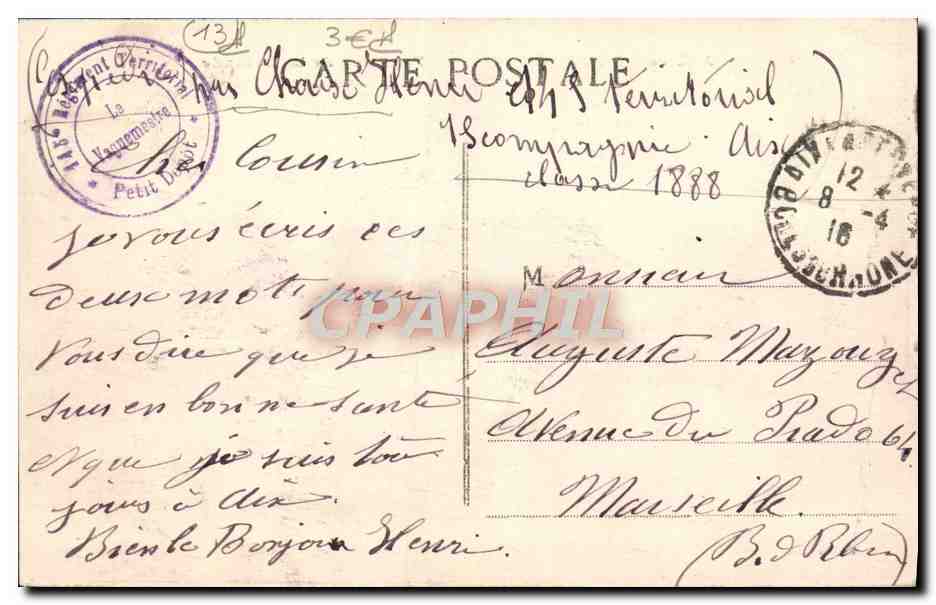 13
3€
CARTE POSTALE
145e Régiment Territorial
Le Vaguemestre
Petit Dépot
Chasse Henri 145 Territorial
15 compagnie Aix
classe 1888
Cher Cousin
je vous écris ces
deux mots pour
vous dire que je
suis en bonne santé
et que je suis tou
jours à Aix.
Bien le Bonjour Henri.
12
8 -4
16
BOUCHES DU RHONE
Monsieur
Auguste Mazouyez
Avenue du Prado 64.
Marseille.
(B. d Rhône)
CPAPHIL